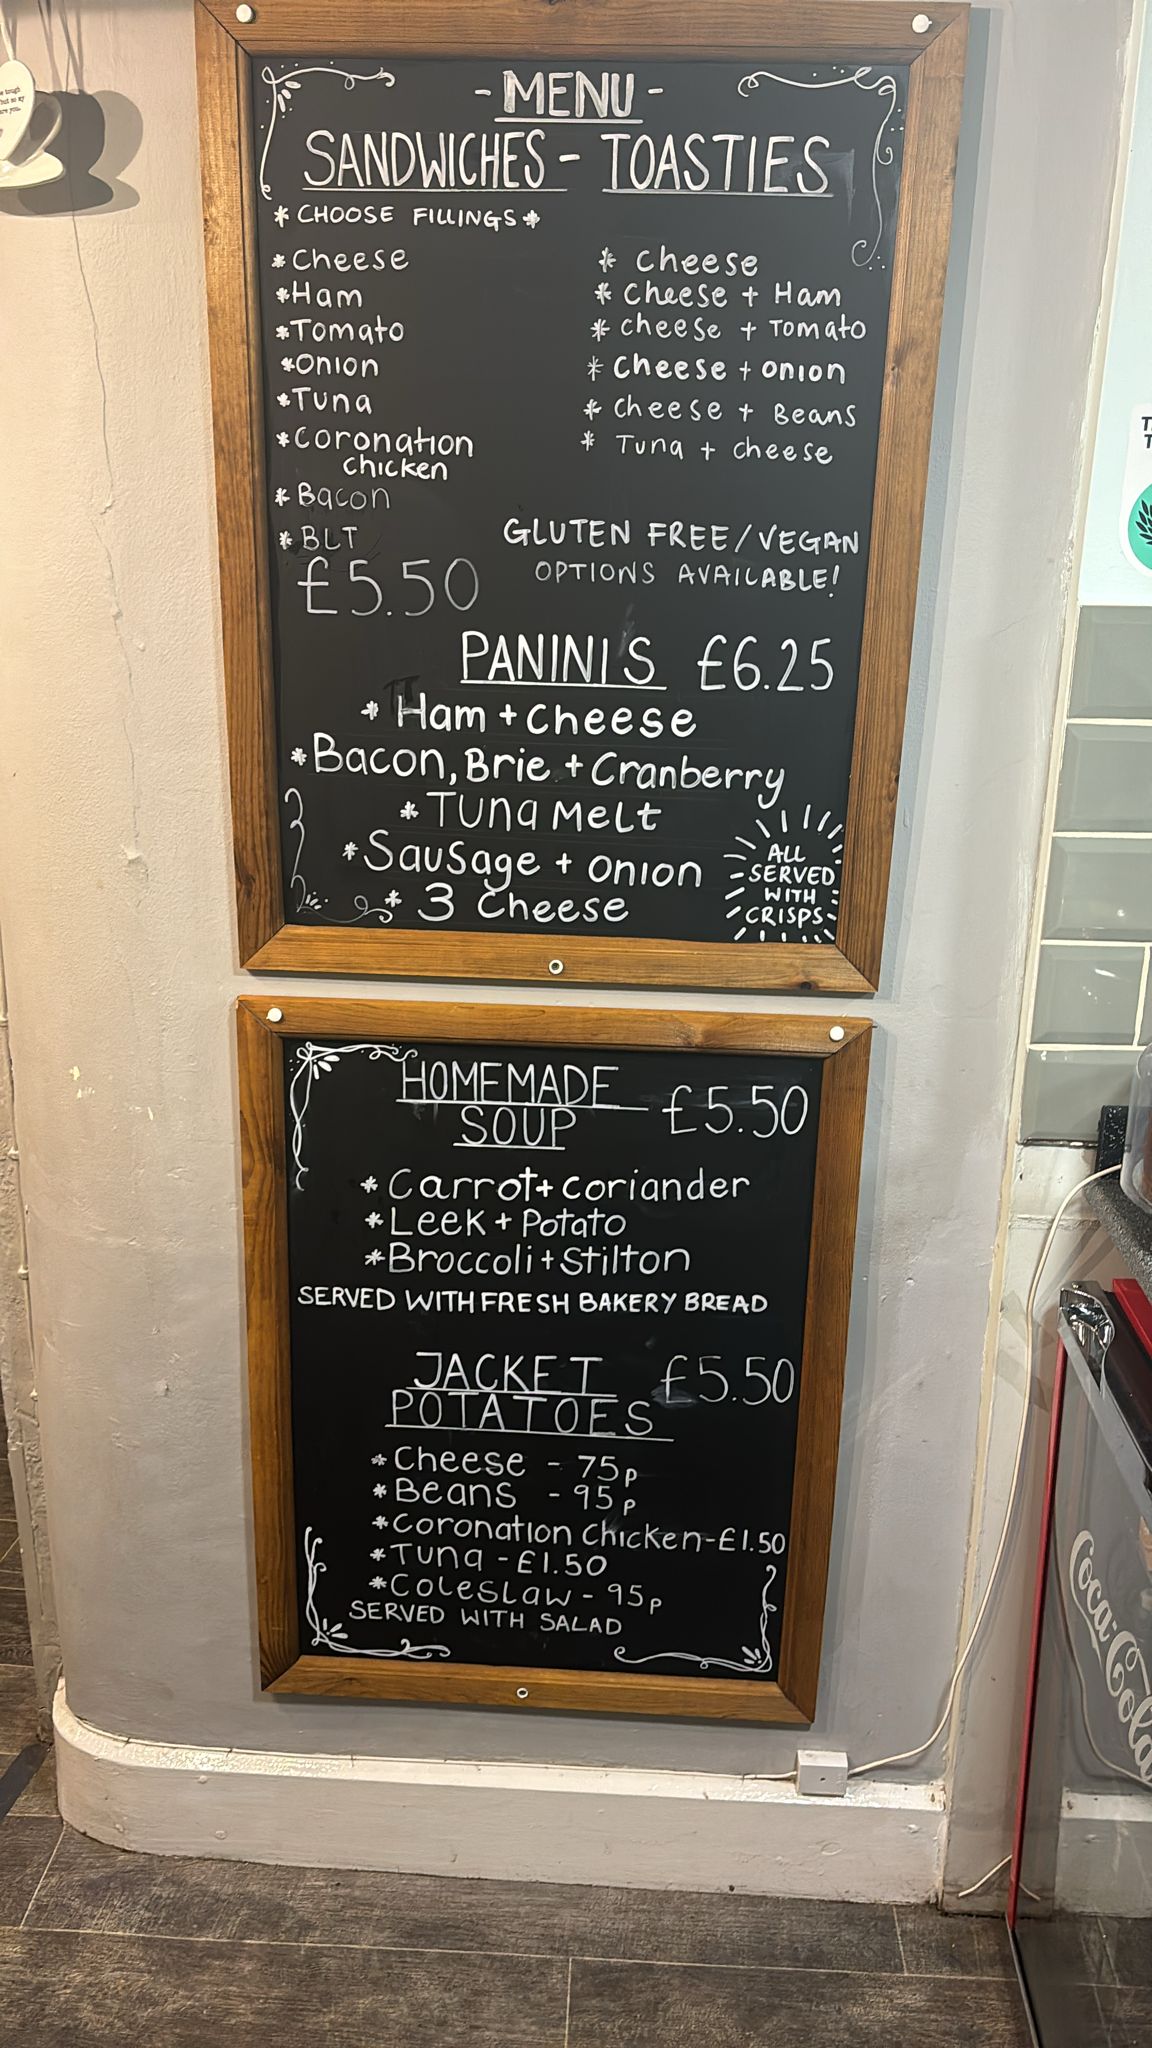 - MENU -
SANDWICHES - TOASTIES
* CHOOSE FILLINGS *
* Cheese
* Ham
* Tomato
* Onion
* Tuna
* Coronation
chicken
* Bacon
* BLT
£5.50
* Cheese
* Cheese + Ham
* Cheese + Tomato
* Cheese + onion
* Cheese + Beans
* Tuna + cheese
GLUTEN FREE/VEGAN
OPTIONS AVAILABLE!
PANINIS £6.25
* Ham + cheese
* Bacon, Brie + Cranberry
* Tuna Melt
* Sausage + onion
* 3 Cheese
ALL
SERVED
WITH
CRISPS
HOMEMADE
SOUP £5.50
* Carrot + coriander
* Leek + Potato
* Broccoli + Stilton
SERVED WITH FRESH BAKERY BREAD
JACKET
POTATOES £5.50
* Cheese - 75p
* Beans - 95p
* Coronation Chicken - £1.50
* Tuna - £1.50
* Coleslaw - 95p
SERVED WITH SALAD
Coca-Cola